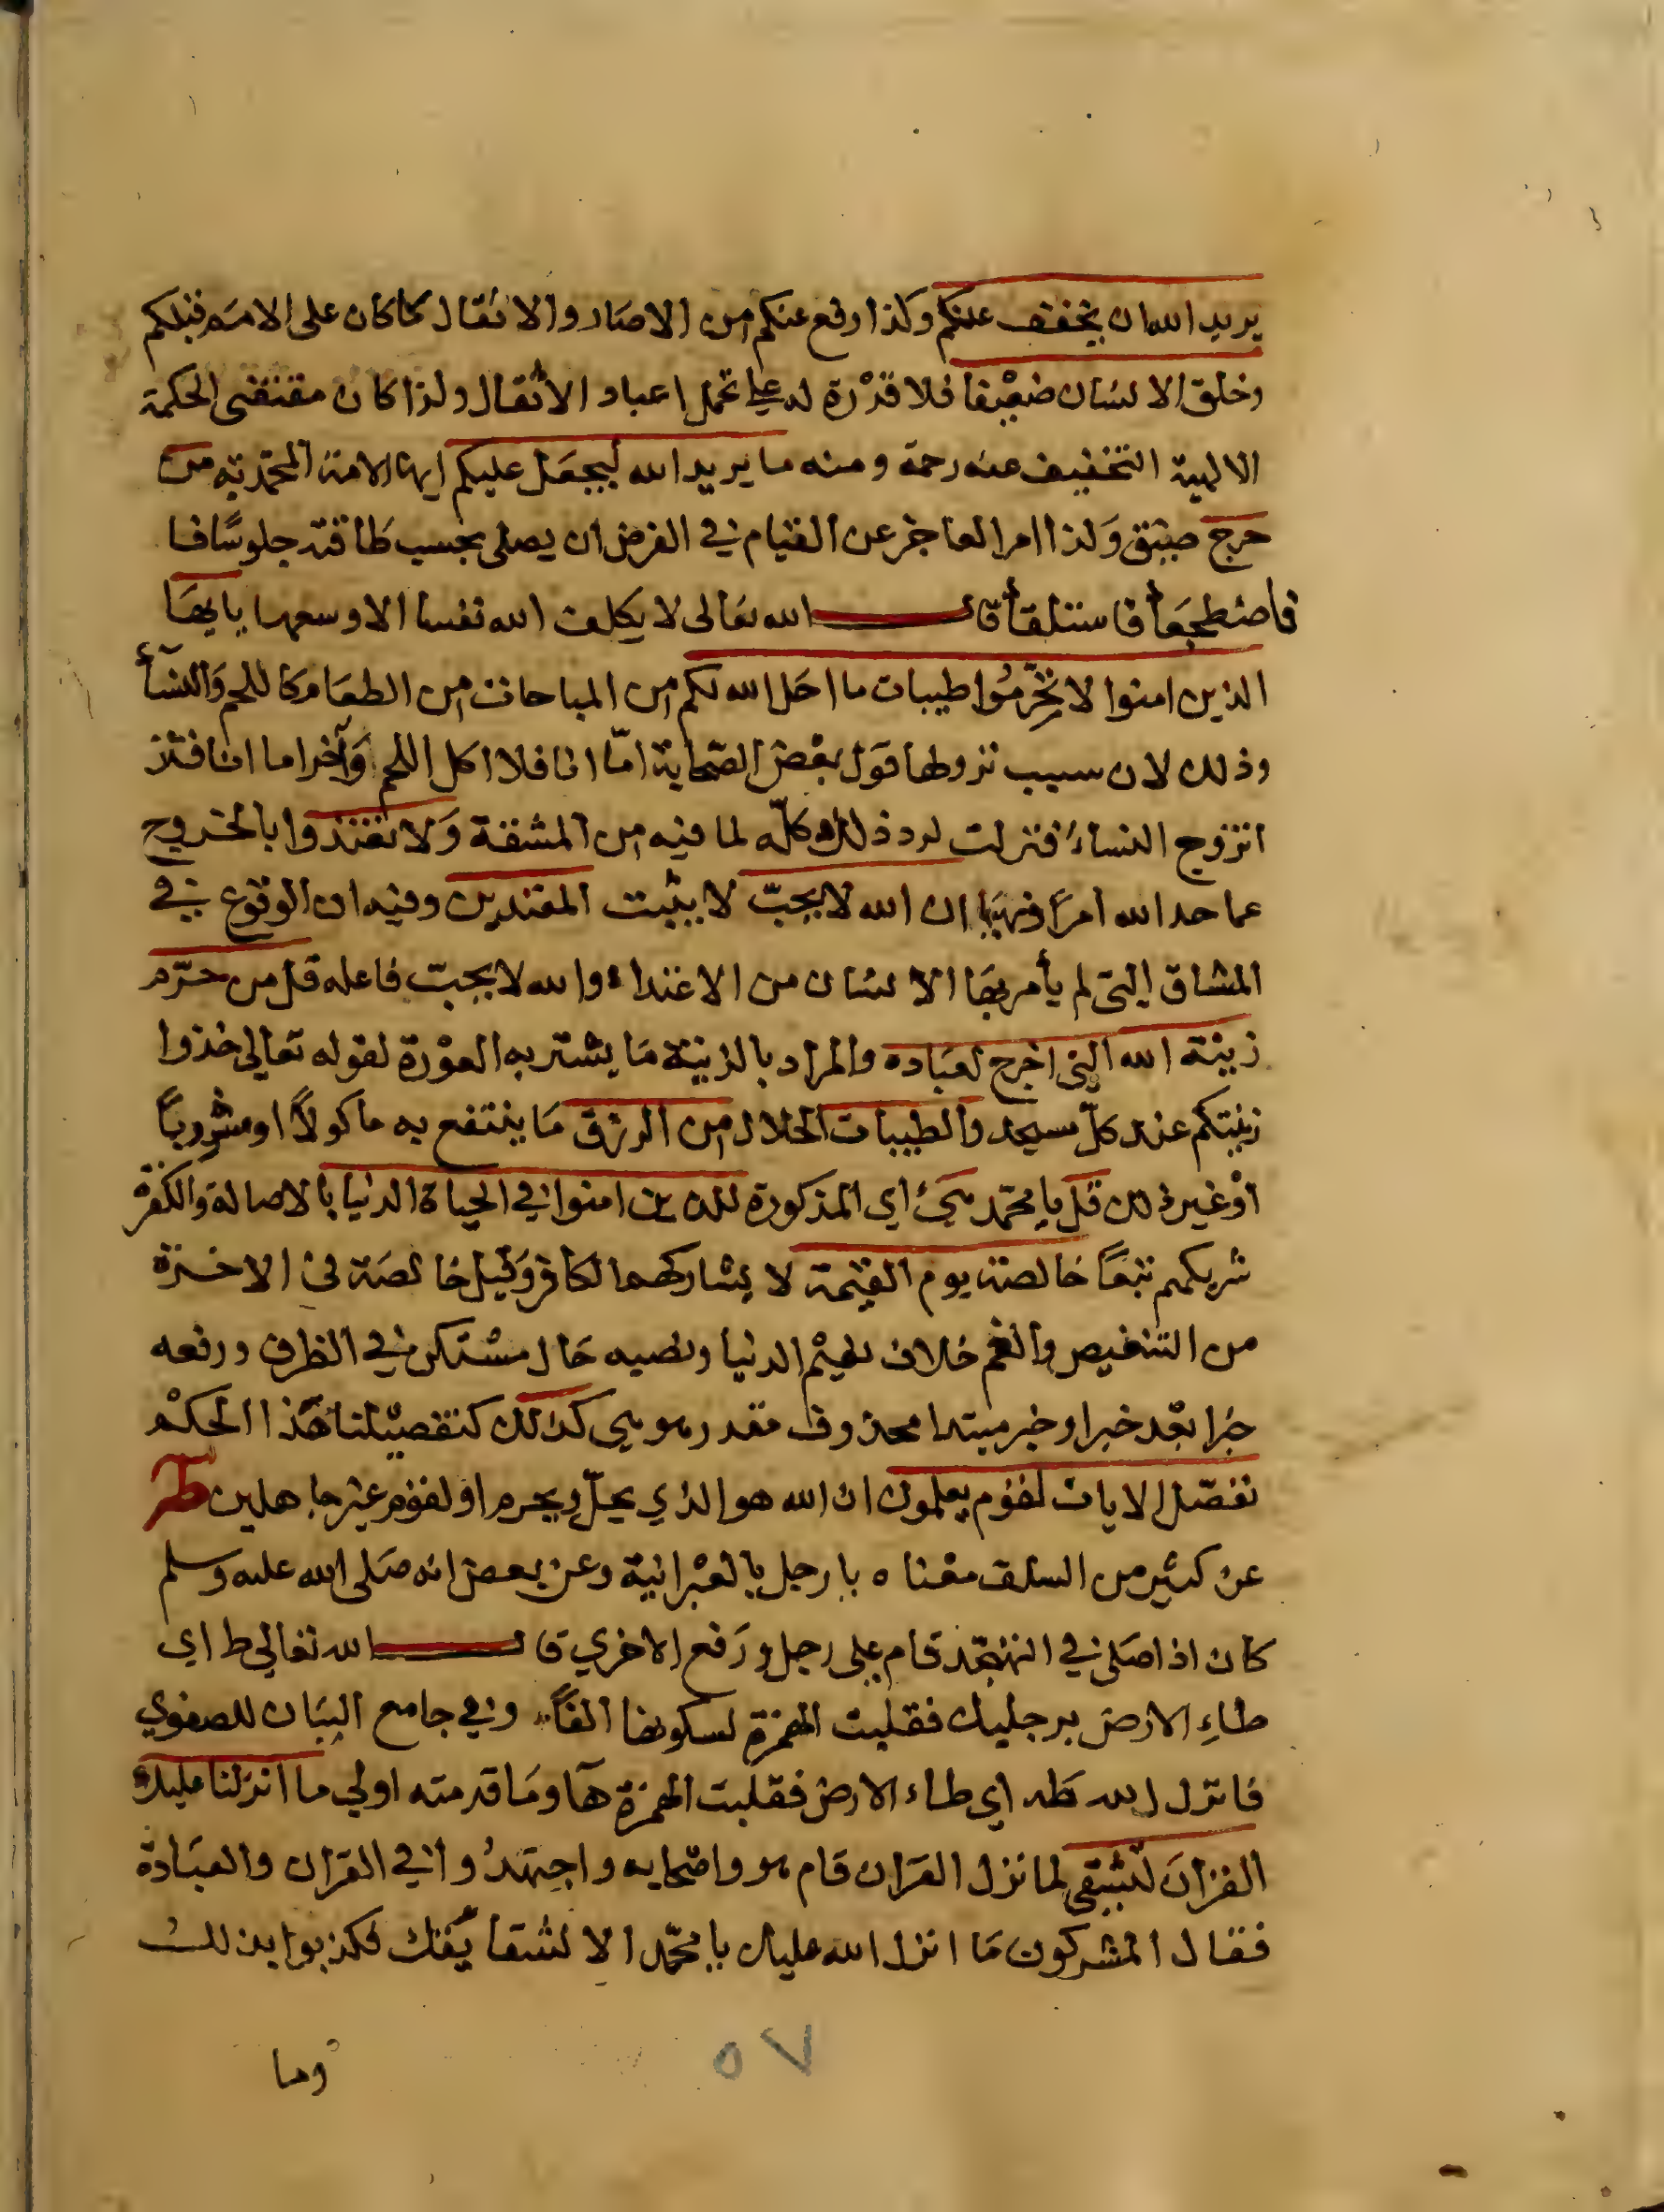 يريد الله ان يخفف عنكم وكذا رفع عنكم من الاصار والاثقال كما كان على الامم قبلكم
وخلق الانسان ضعيفا فلا قدْرة له على تحمل اعباء الاثقال ولذا كان مقتضى الحكمة
الالهية التخفيف عنه رحمة ومنه ما يريد الله ليجعَل عليكم ايها الامة المحمّدية من
حرج ضيق وَلذا امر العاجز عن القيام في الفرض ان يصلى بحسب طَاقته جلوسًا فا
فاضطجعَا فاستلقأ قال الله تعَالى لا يكلف الله نفسا الا وسعها يا ايهَا
الذين امنوا لا تحَرِّمُوا طيبات ما احَل الله لكم من المباحات من الطعَام كاللحم وَالنسآء
وذلك لان سبب نزولها قول بعْض الصحابة امّا انا فلا اكل اللحم وَآخر اما انا فلا
اتزوج النساءَ فنزلت لرد ذلك كلّه لما فيه من المشقة وَلا تعتدوا بالخروج
عما حد الله امرًا ونهيًا ان الله لا يحبّ لا يثيب المعتدين وفيه ان الوقوع في
المشاق التى لم يأمر بهَا الانسَان من الاعتداء والله لا يحبّ فاعله قل من حرّم
زينة الله التى اخرج لعبَاده والمراد بالزينة مَا يستر به العوْرة لقوله تعَالى خذوا
زينتكم عند كلّ مسجد والطيبات الحلال من الرزق مَا ينتفع به ماكولاً او مشروباً
أوْ غير ذلك قل يا محمّد هيَ اي المذكورة للذين امنوا في الحياة الدنيا بالاصالة وَالكفرة
شريكهم تبعًا خالصة يوم القيمة لا يشاركهم الكافر وَقيل خالصَة في الاخرة
من التنغيص والغم خلاف نعيْم الدنيا ونصبه حَال مسْتكن في الظرف ورفعه
خبرا بعْد خبر او خبر مبتدا محذوف مقدر هو هي كذلك كتفصيْلنا هَذا الحكمْ
نفصّل الايات لقوم يعلمون ان الله هو الذي يحلّ ويحرم او لقوم غير جاهلين طه
عن كثير من السلف معْناه يا رجل بالعبْرانية وعن بعض انه صَلى الله عليه وسلم
كان اذا صَلى في التهجّد قام على رجل ورَفع الاخري قال الله تعالى طه اي
طاءِ الارض برجليك فقلبت الهمزة لسكونها الفًا وفي جامع البيَان للصفوي
فانزل الله طَه اي طاء الارض فقلبت الهمزة هآ ومَا قدمته اولي ما انزلنا عليك
القرانَ لتشقى لما نزل القرَان قام هو واصحابه واجتهدُوا في القرَان والعبَادة
فقال المشركون مَا انزل الله عليك يا محمّد الا لشقائِك فكذبوا بذلك
وما
٥٧